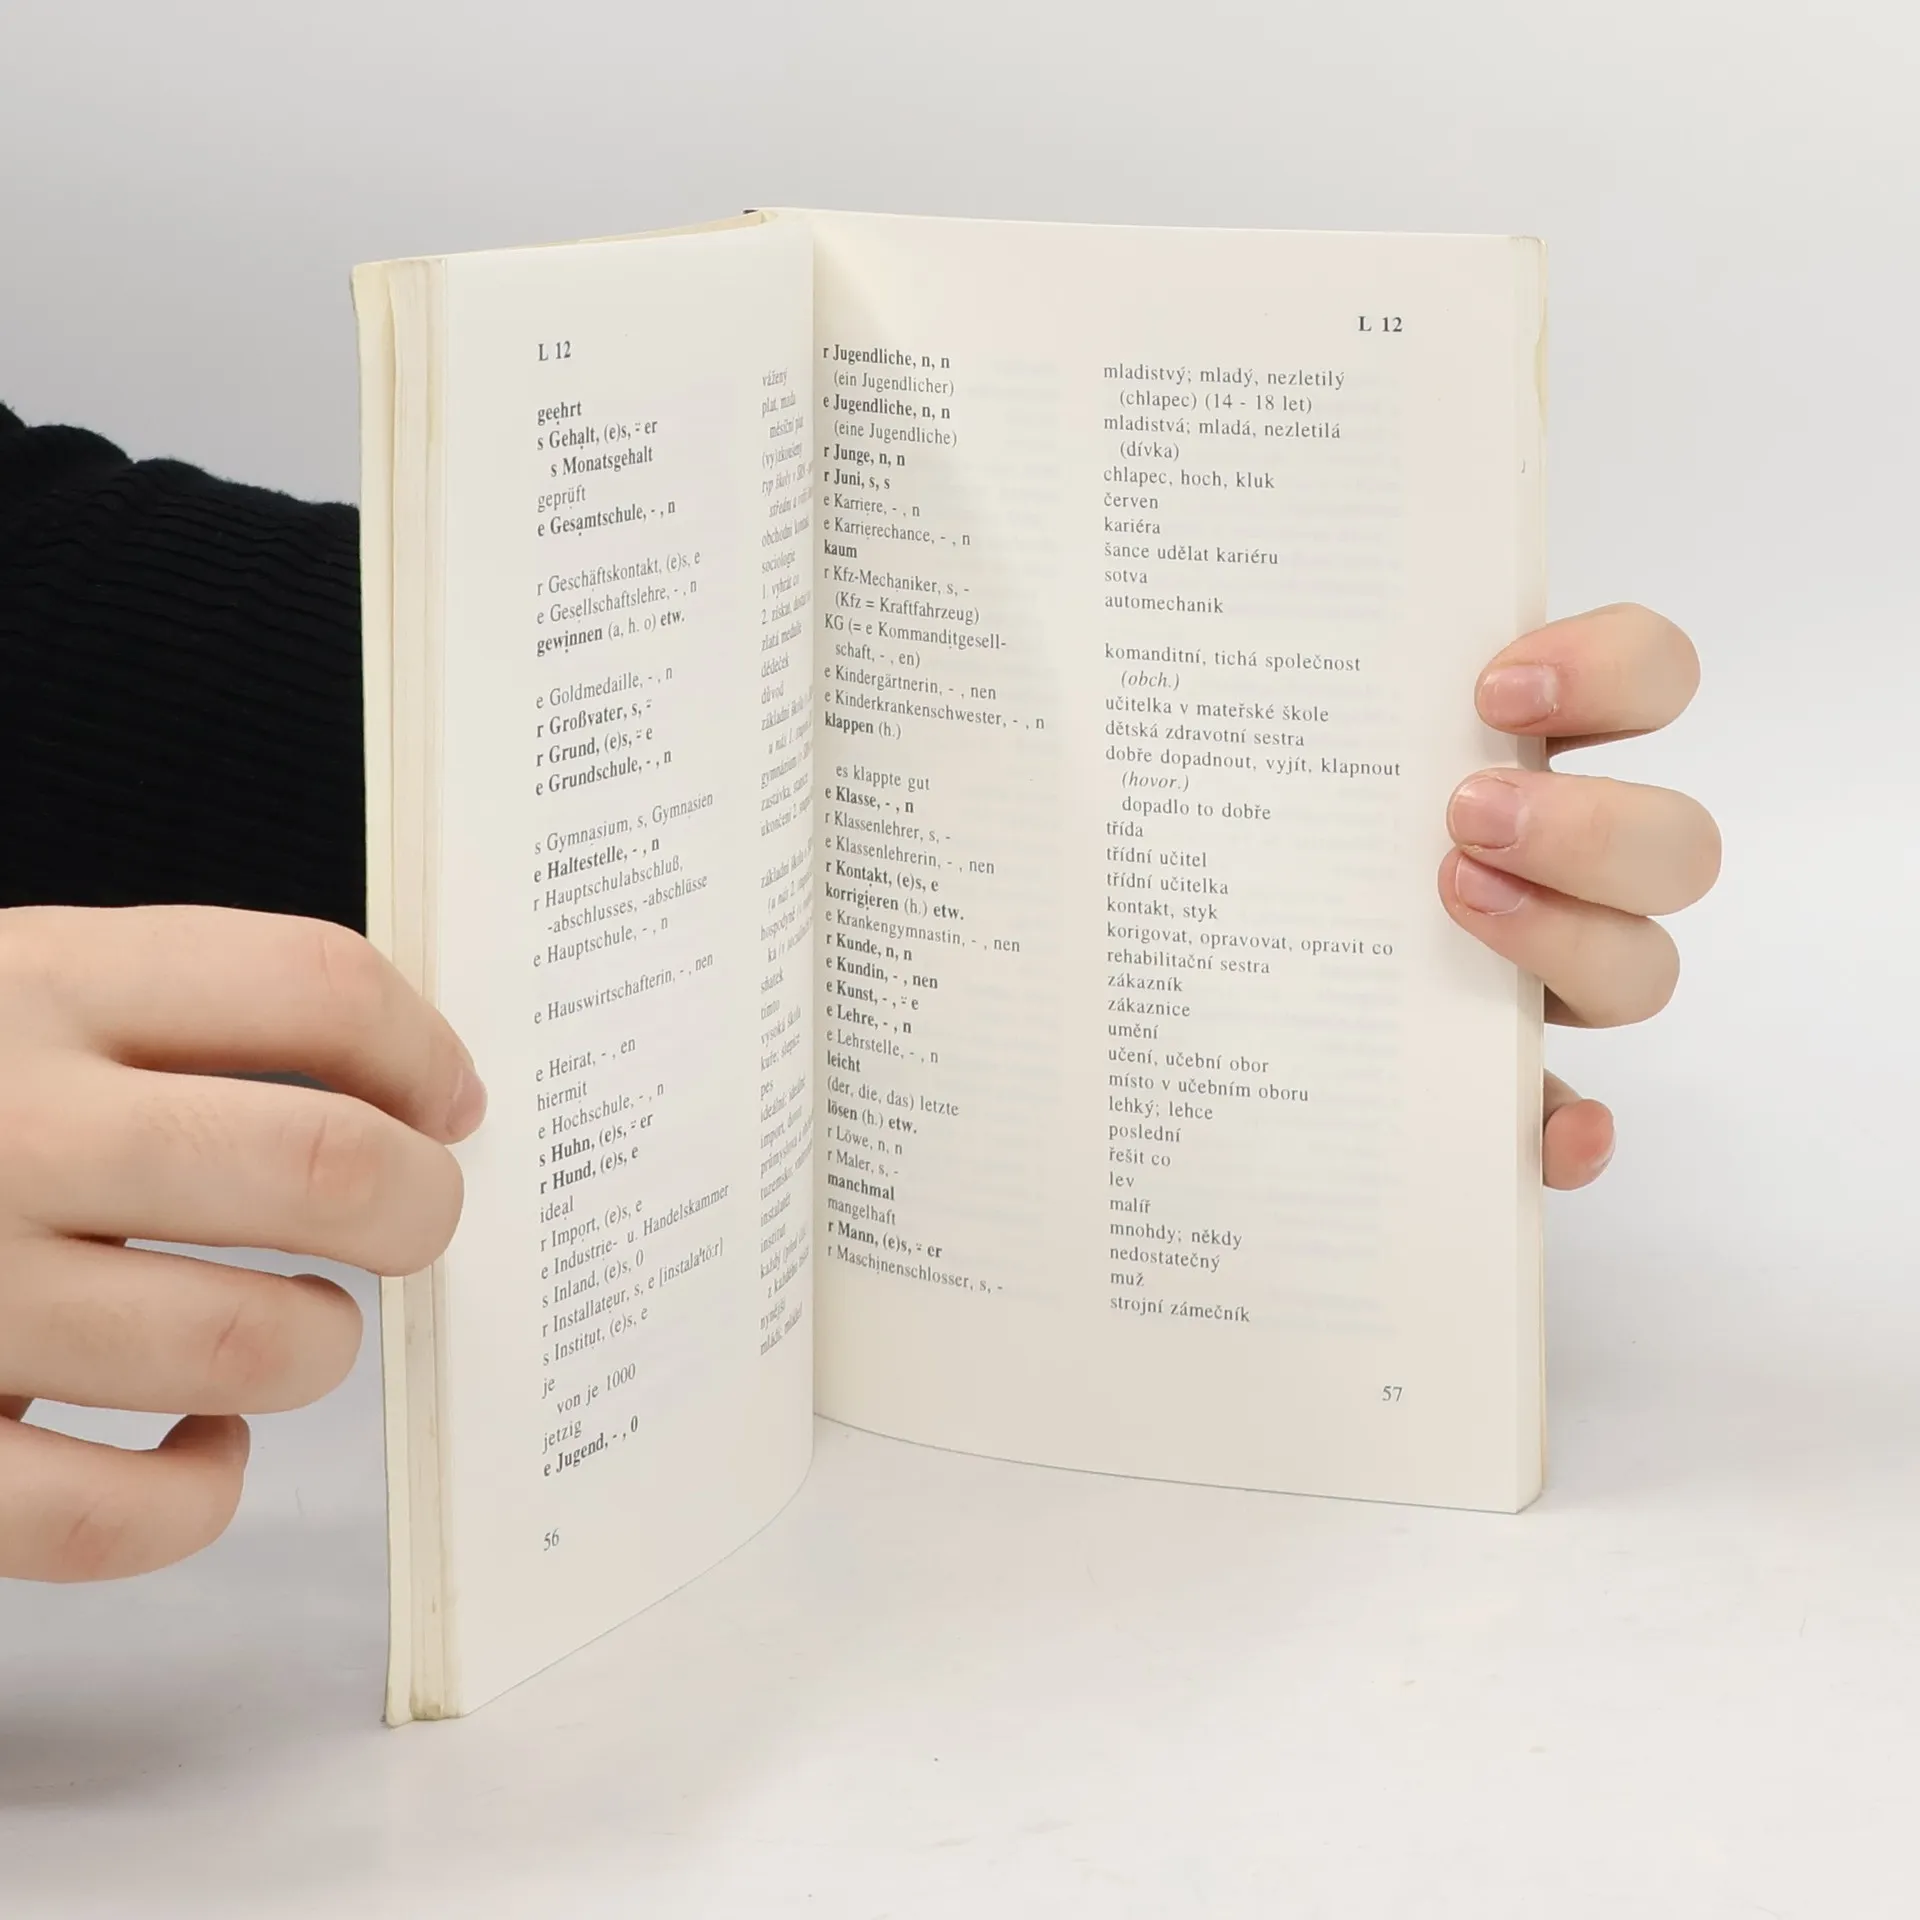 L 12
geehrt
s Gehalt, (e)s, ⸚er
s Monatsgehalt
geprüft
e Gesamtschule, - , n
r Geschäftskontakt, (e)s, e
e Gesellschaftslehre, - , n
gewinnen (a, h. o) etw.
e Goldmedaille, - , n
r Großvater, s, ⸚
r Grund, (e)s, ⸚e
e Grundschule, - , n
s Gymnasium, s, Gymnasien
e Haltestelle, - , n
r Hauptschulabschluß,
-abschlusses, -abschlüsse
e Hauptschule, - , n
e Hauswirtschafterin, - , nen
e Heirat, - , en
hiermit
e Hochschule, - , n
s Huhn, (e)s, ⸚er
r Hund, (e)s, e
ideal
r Import, (e)s, e
e Industrie- u. Handelskammer
s Inland, (e)s, 0
r Installateur, s, e [instala'tö:r]
s Institut, (e)s, e
je
von je 1000
jetzig
e Jugend, - , 0
vážený
plat, mzda
měsíční plat
(vy)zkoušený
typ školy v
obchodní
sociologie
1. vyhrát co
2. získat,
zlatá medaile
dědeček
důvod
základní škola
gymnázium
zastávka, stanice
ukončení 2.
základní škola
sňatek
tímto
vysoká škola
kuře; slepice
pes
ideální; ideálně
import, dovoz
instalatér
institut
každý
nynější
mládí; mládež
56
L 12
r Jugendliche, n, n mladistvý; mladý, nezletilý
(ein Jugendlicher) (chlapec) (14 - 18 let)
e Jugendliche, n, n mladistvá; mladá, nezletilá
(eine Jugendliche) (dívka)
r Junge, n, n chlapec, hoch, kluk
r Juni, s, s červen
e Karriere, - , n kariéra
e Karrierechance, - , n šance udělat kariéru
kaum sotva
r Kfz-Mechaniker, s, - automechanik
(Kfz = Kraftfahrzeug)
KG (= e Kommanditgesell- komanditní, tichá společnost
schaft, - , en) (obch.)
e Kindergärtnerin, - , nen učitelka v mateřské škole
e Kinderkrankenschwester, - , n dětská zdravotní sestra
klappen (h.) dobře dopadnout, vyjít, klapnout
(hovor.)
es klappte gut dopadlo to dobře
e Klasse, - , n třída
r Klassenlehrer, s, - třídní učitel
e Klassenlehrerin, - , nen třídní učitelka
r Kontakt, (e)s, e kontakt, styk
korrigieren (h.) etw. korigovat, opravovat, opravit co
e Krankengymnastin, - , nen rehabilitační sestra
r Kunde, n, n zákazník
e Kundin, - , nen zákaznice
e Kunst, - , ⸚e umění
e Lehre, - , n učení, učební obor
e Lehrstelle, - , n místo v učebním oboru
leicht lehký; lehce
(der, die, das) letzte poslední
lösen (h.) etw. řešit co
r Löwe, n, n lev
r Maler, s, - malíř
manchmal mnohdy; někdy
mangelhaft nedostatečný
r Mann, (e)s, ⸚er muž
r Maschinenschlosser, s, - strojní zámečník
57